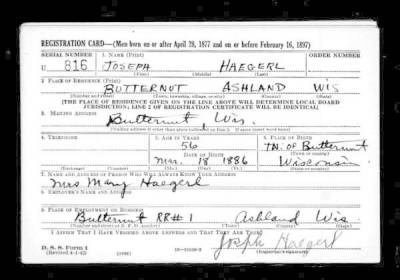 REGISTRATION CARD—(Men born on or after April 28, 1877 and on or before February 16, 1897)
SERIAL NUMBER 1. NAME (Print) ORDER NUMBER
U 816 JOSEPH HAEGERL
(First) (Middle) (Last)
2. PLACE OF RESIDENCE (Print)
BUTTERNUT ASHLAND WIS
(Number and street) (Town, township, village, or city) (County) (State)
[THE PLACE OF RESIDENCE GIVEN ON THE LINE ABOVE WILL DETERMINE LOCAL BOARD
JURISDICTION; LINE 2 OF REGISTRATION CERTIFICATE WILL BE IDENTICAL]
3. MAILING ADDRESS
Butternut, Wis.
[Mailing address if other than place indicated on line 2. If same insert word same]
4. TELEPHONE 5. AGE IN YEARS 6. PLACE OF BIRTH
56 TN. of Butternut
DATE OF BIRTH (Town or county)
Mar. 18 1886 Wisconsin
(Exchange) (Number) (Mo.) (Day) (Yr.) (State or country)
7. NAME AND ADDRESS OF PERSON WHO WILL ALWAYS KNOW YOUR ADDRESS
Mrs Mary Haegerl
8. EMPLOYER'S NAME AND ADDRESS
9. PLACE OF EMPLOYMENT OR BUSINESS
Butternut RR#1 Ashland Wis.
(Number and street or R. F. D. number) (Town) (County) (State)
I AFFIRM THAT I HAVE VERIFIED ABOVE ANSWERS AND THAT THEY ARE TRUE.
D. S. S. Form 1
(Revised 4-1-42) (over) Joseph Haegerl
(Registrant's signature)